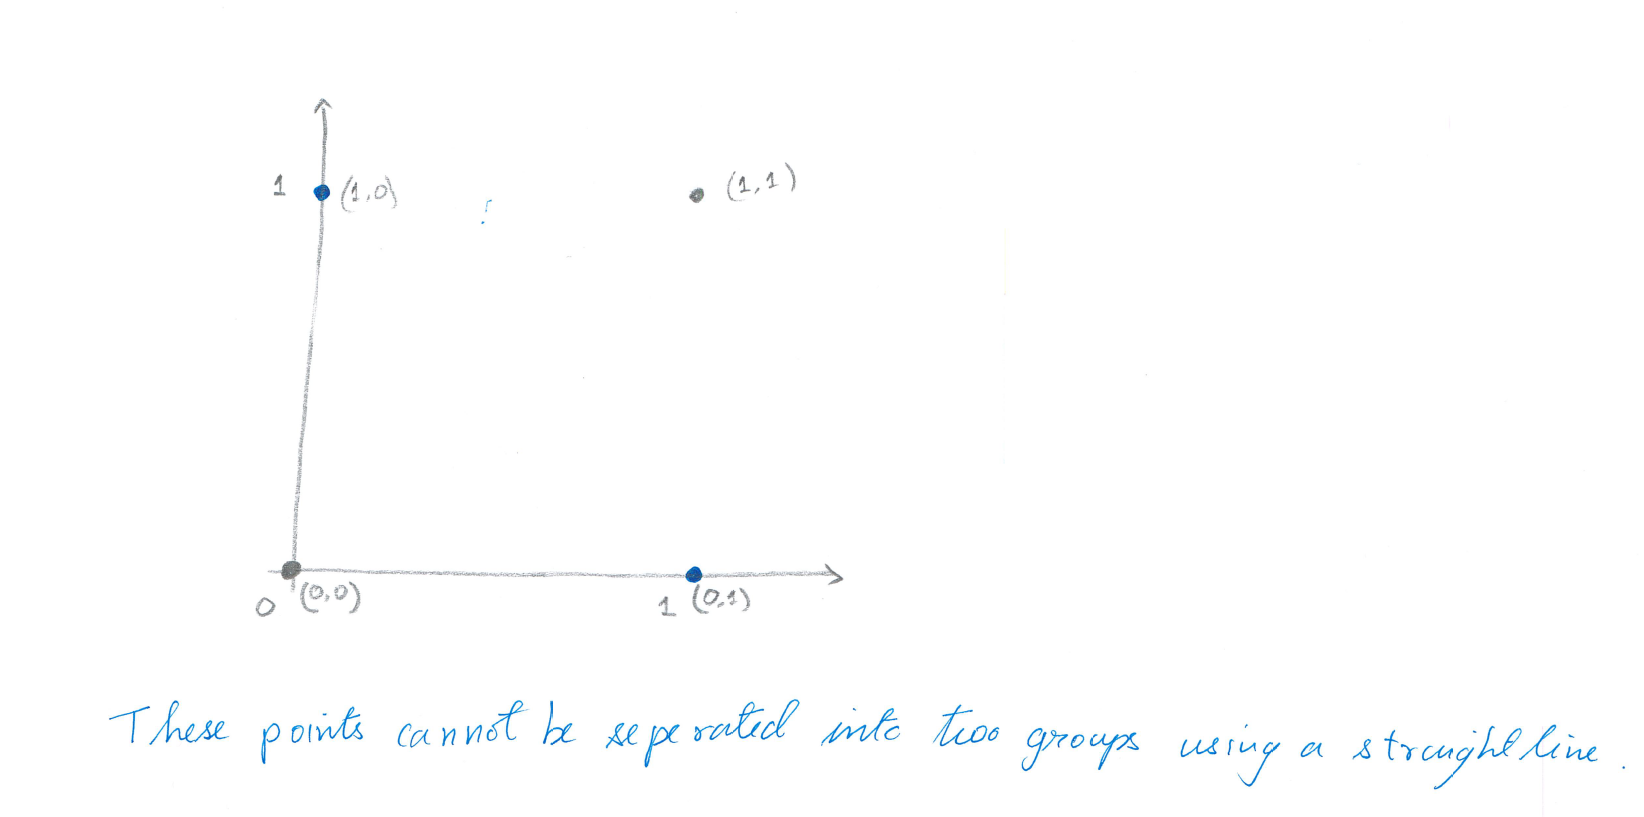 1 (1,0) (1,1)
0 (0,0) 1 (0,1)
These points cannot be seperated into two groups using a straight line.